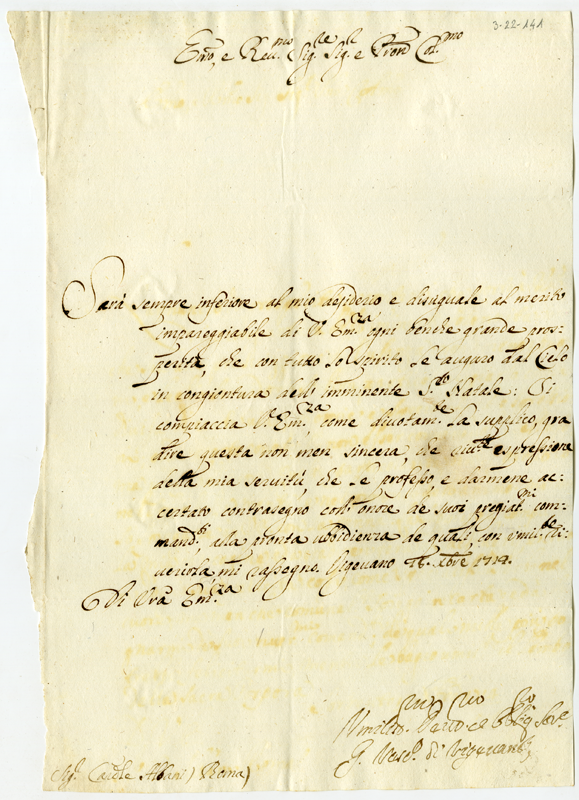 3-22-141
Emo, e Revmo Sigre Sigr e Pron Colmo
Sarà sempre inferiore al mio desiderio e disuguale al merito
impareggiabile di V. Emza ogni benche grande pros-
perità, che con tutto lo spirito Le auguro dal Cielo
in congiontura dell' imminente Sto Natale: Si
compiaccia V. Emza, come divotamte La supplico, gra
dire questa non men sincera, che espressione
della mia servitù, che Le professo, e darmene ac-
certato contrasegno con l' onore de suoi pregiatmi com-
mandti alla pronta ubbidienza de quali, con umilte ri-
verirla mi rassegno. Vigevano Xbre
Di Vra Emza
Umilmo Devmo ed Obligmo Serre
G. Vesco di Vigevano
Sigr Cardle Albani) Roma)